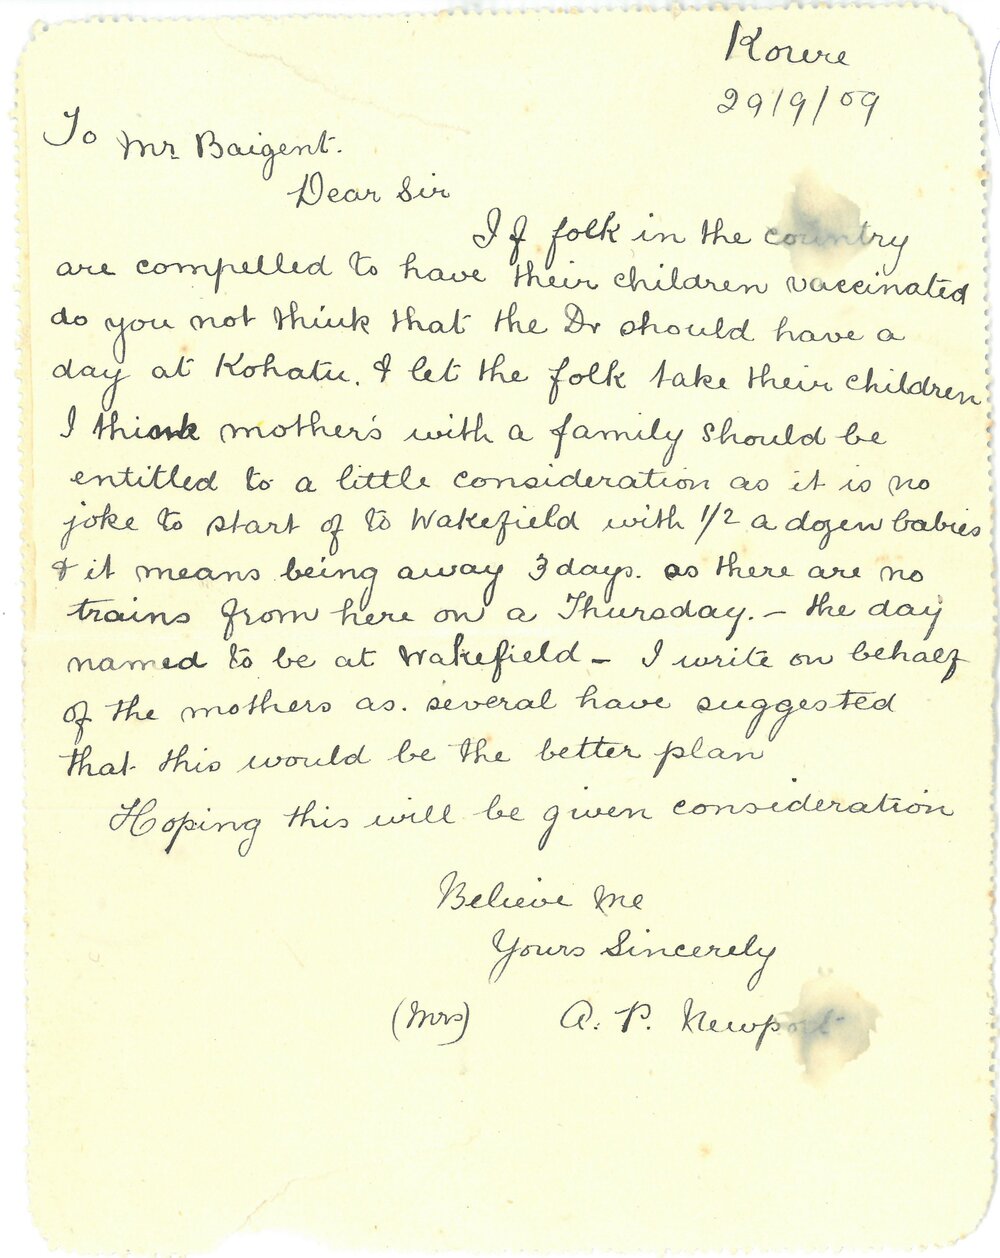 Kowre
29/9/09
To Mr Baigent.
Dear Sir
If folk in the country
are compelled to have their children vaccinated
do you not think that the Dr should have a
day at Kohatu. & let the folk take their children
I think mother's with a family should be
entitled to a little consideration as it is no
joke to start of to Wakefield with 1/2 a dozen babies
& it means being away 3 days. as there are no
trains from here on a Thursday. – the day
named to be at Wakefield – I write on behalf
of the mothers as. several have suggested
that this would be the better plan
Hoping this will be given consideration
Believe Me
Yours Sincerely
(Mrs) A. P. Newport